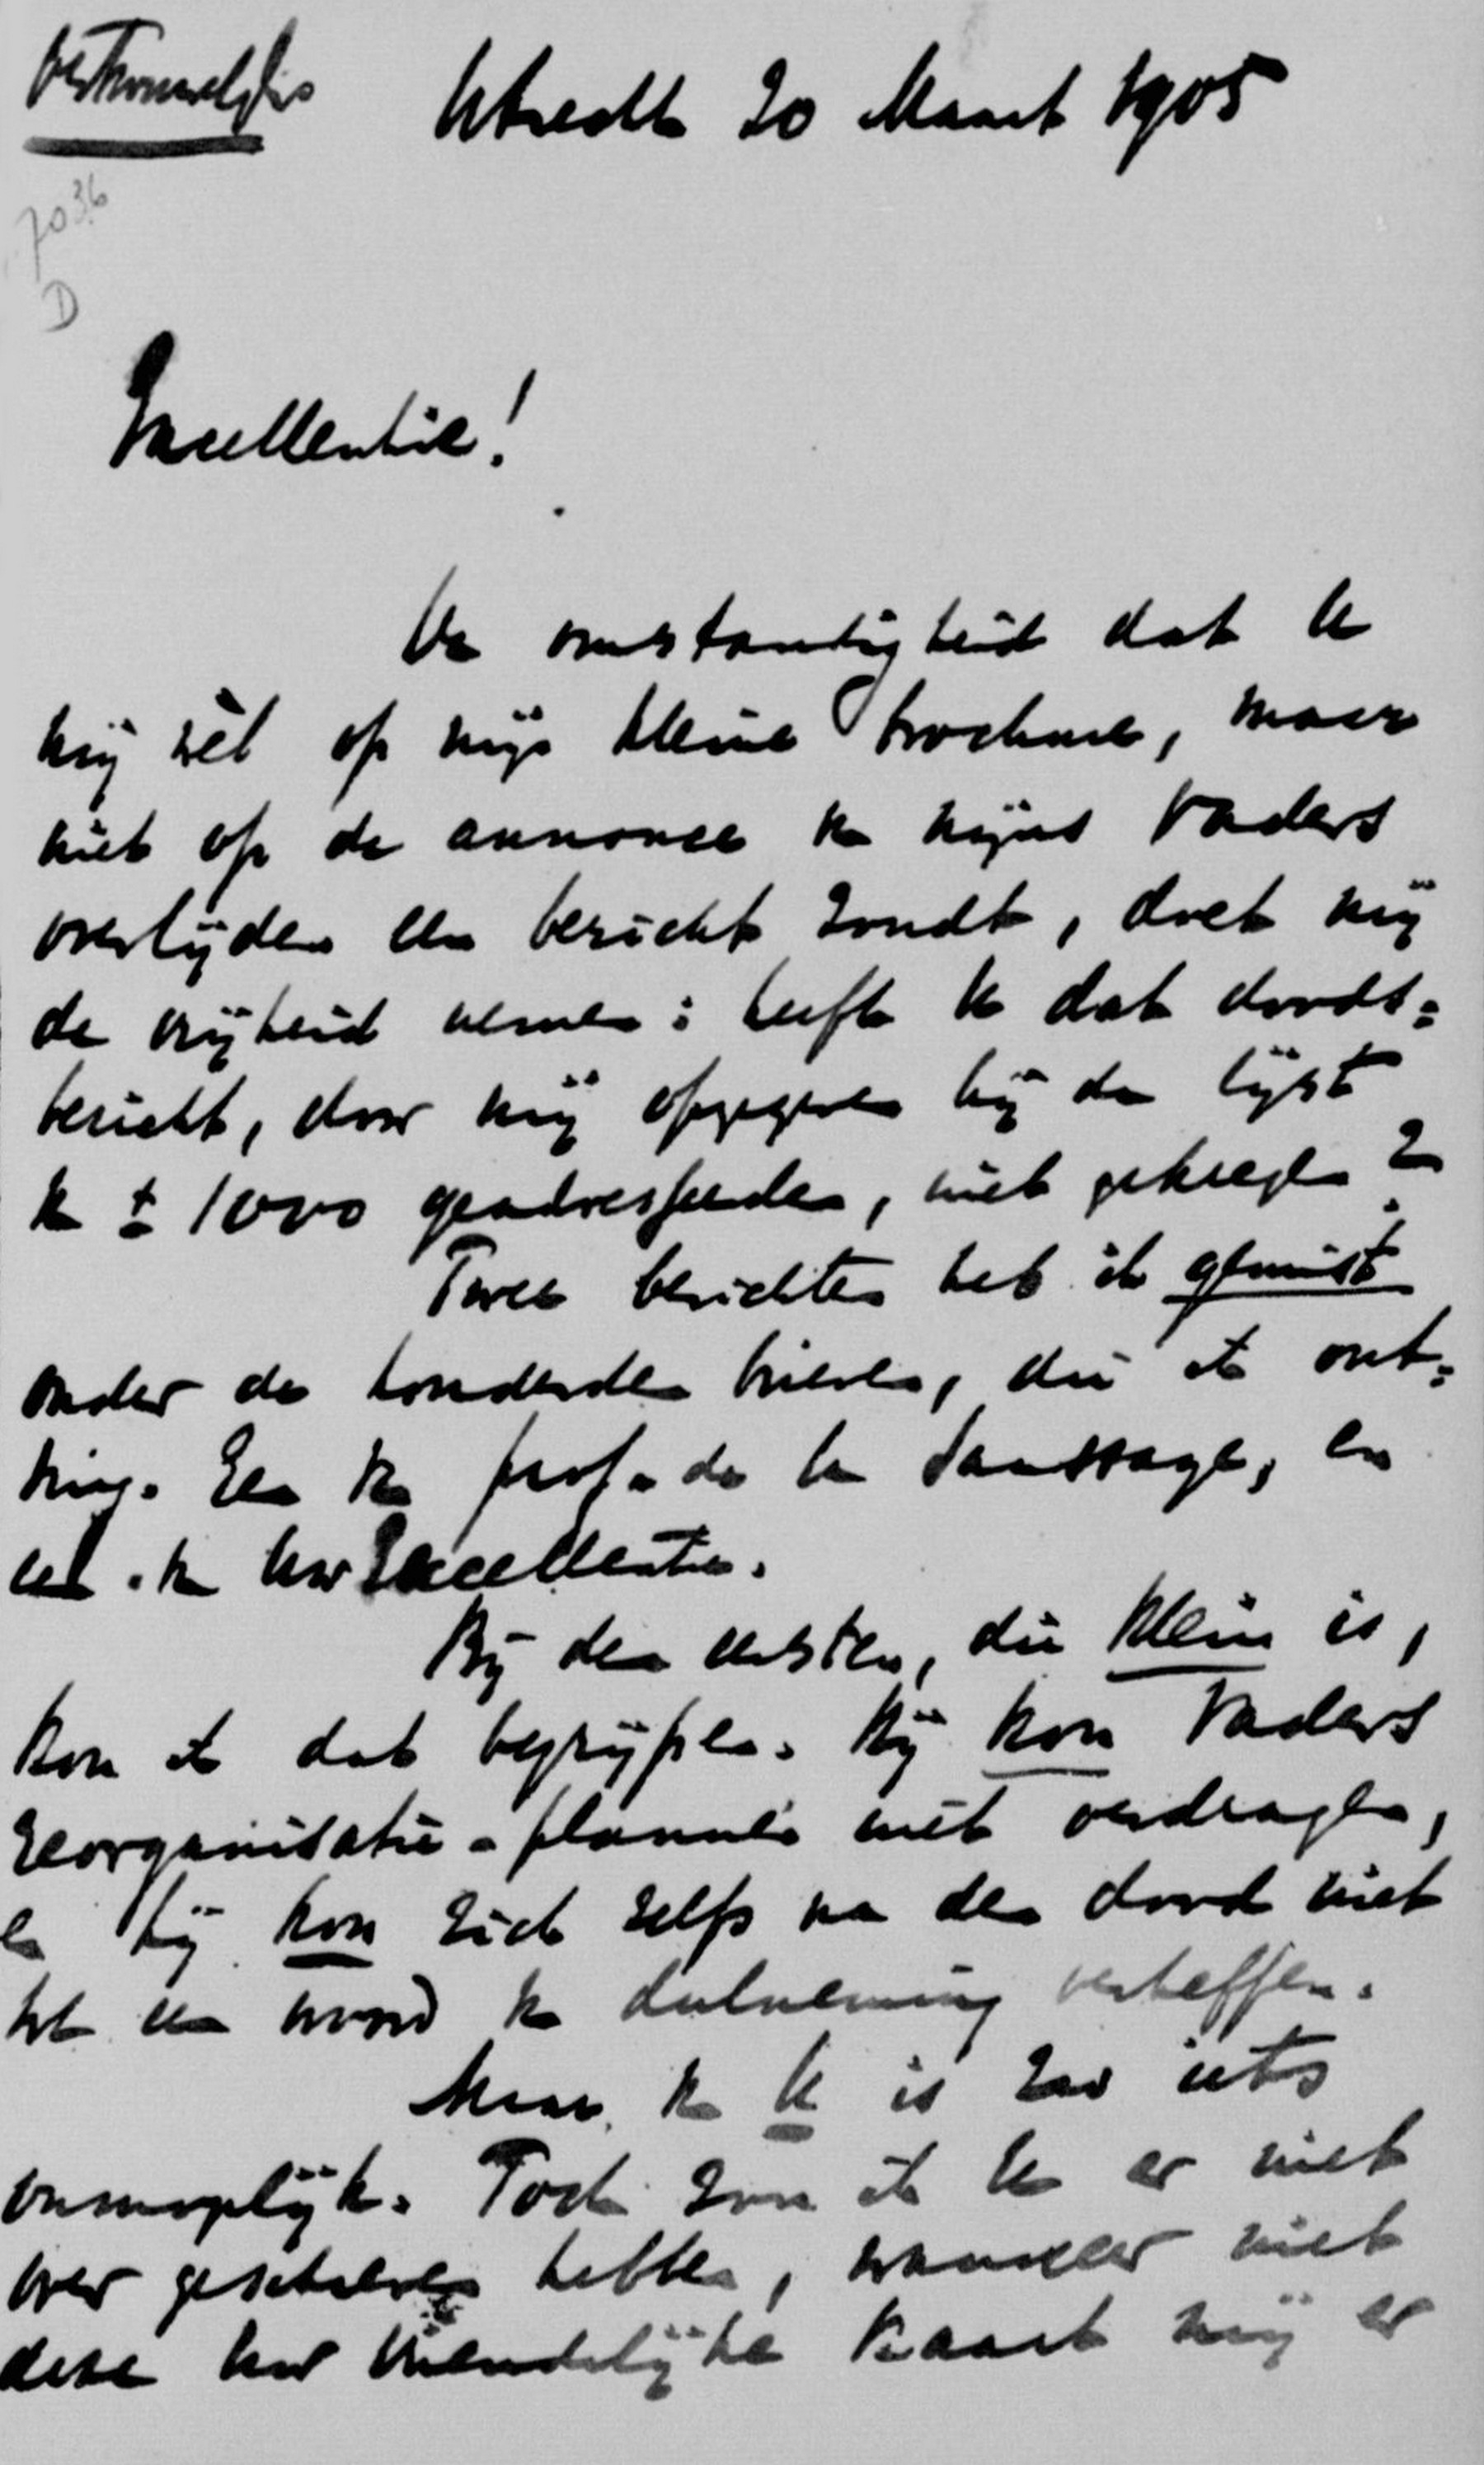 Vertrouwelijk
Utrecht 20 Maart 1905
7036
D
Excellentie!
De omstandigheid dat U
mij wèl op mijn kleine brochure, maar
niet op de annonce v. mijns Vaders
overlijden een bericht zondt, doet mij
de vrijheid nemen: heeft U dat doods=
bericht, door mij opgegeven bij de lijst
v. ± 1000 geadresseerden, niet gekregen?
Twee berichten heb ik gemist
onder de honderden brieven, die ik ont=
ving. Een v. prof. de la Saussaye, en
een v. Uw Excellentie.
Bij den eersten, die klein is,
kon ik dat begrijpen. Hij kon Vaders
reorganisatie-plannen niet verdragen,
en hij kon zich zelfs na den dood niet
tot een woord v. deelneming verheffen.
Maar v. U is zoo iets
onmogelijk. Toch zou ik U er niet
over geschreven hebben, wanneer niet
deze Uw vriendelijke kaart mij er